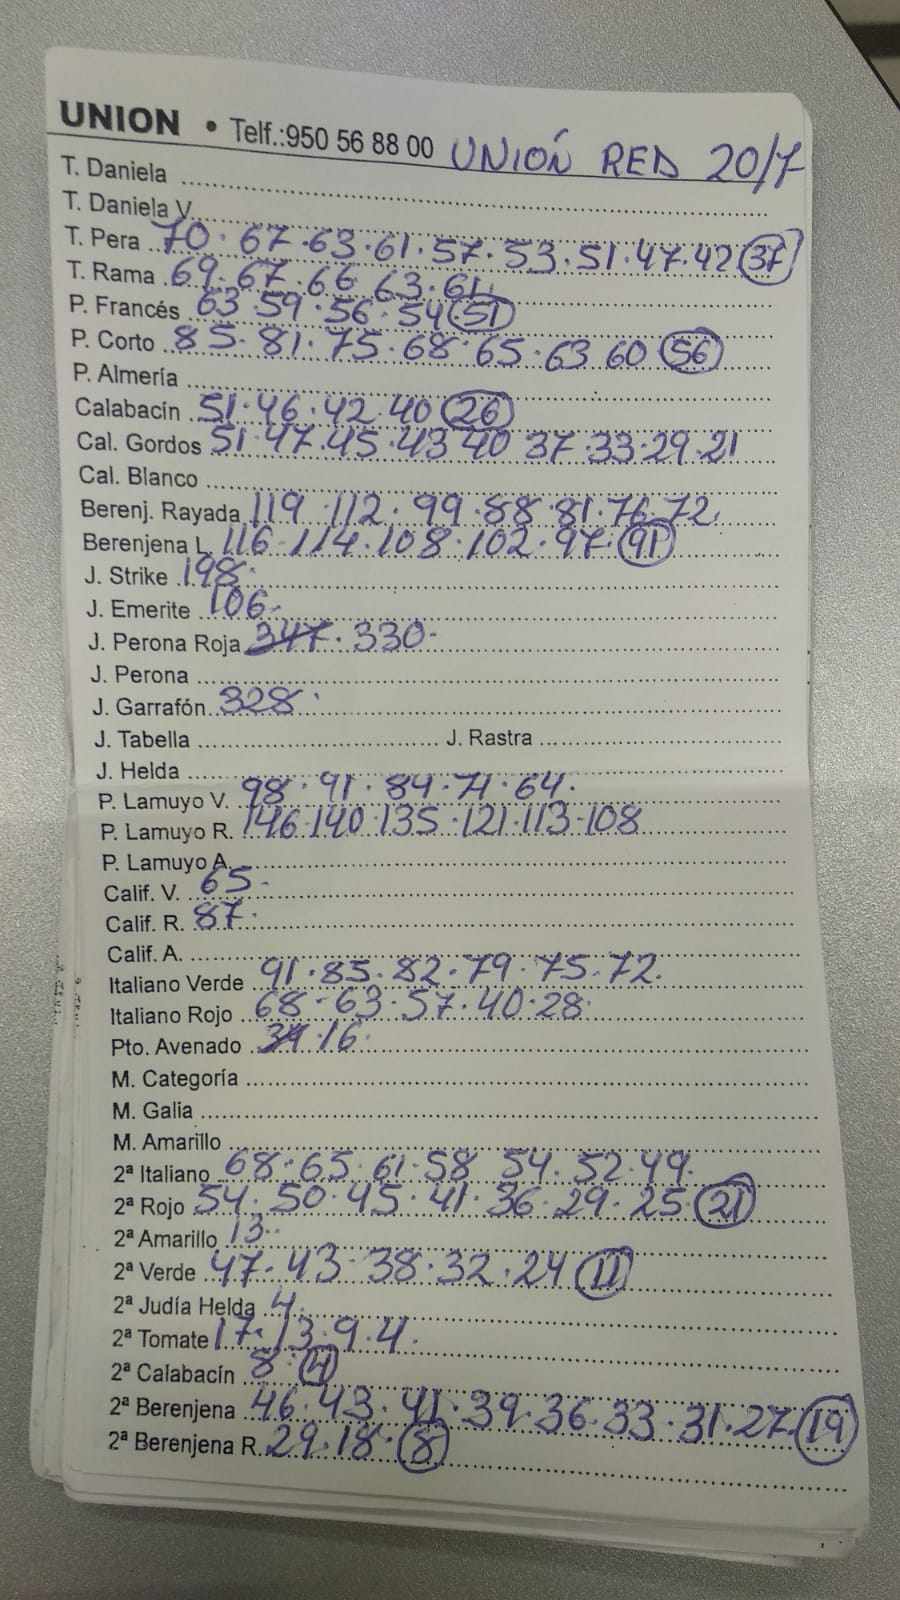 UNION • Telf.:950 56 88 00 UNIÓN RED 20/7
T. Daniela
T. Daniela V.
T. Pera 70·67·63·61·57·53·51·47·42 37
T. Rama 69·67·66 63·61
P. Francés 63 59·56·54 51
P. Corto 85·81·75·68·65·63 60 56
P. Almería
Calabacín 51·46·42 40 26
Cal. Gordos 51·47·45·43 40 37·33·29·21
Cal. Blanco
Berenj. Rayada 119·112·99·88·81·76·72
Berenjena L. 116·114·108·102·97·91
J. Strike 198
J. Emerite 106
J. Perona Roja 347·330
J. Perona
J. Garrafón 328
J. Tabella J. Rastra
J. Helda
P. Lamuyo V. 98·91·84·71·64
P. Lamuyo R. 146·140·135·121·113·108
P. Lamuyo A.
Calif. V. 65
Calif. R. 87
Calif. A.
Italiano Verde 91·85·82·79·75·72
Italiano Rojo 68·63·57·40·28
Pto. Avenado 16
M. Categoría
M. Galia
M. Amarillo
2ª Italiano 68·65·61·58 54·52·49
2ª Rojo 54·50·45·41·36·29·25 21
2ª Amarillo 13
2ª Verde 47·43·38·32·24 11
2ª Judía Helda 4
2ª Tomate 17·13·9·4
2ª Calabacín 8·4
2ª Berenjena 46·43·41·39·36·33·31·27 19
2ª Berenjena R. 29·18·8